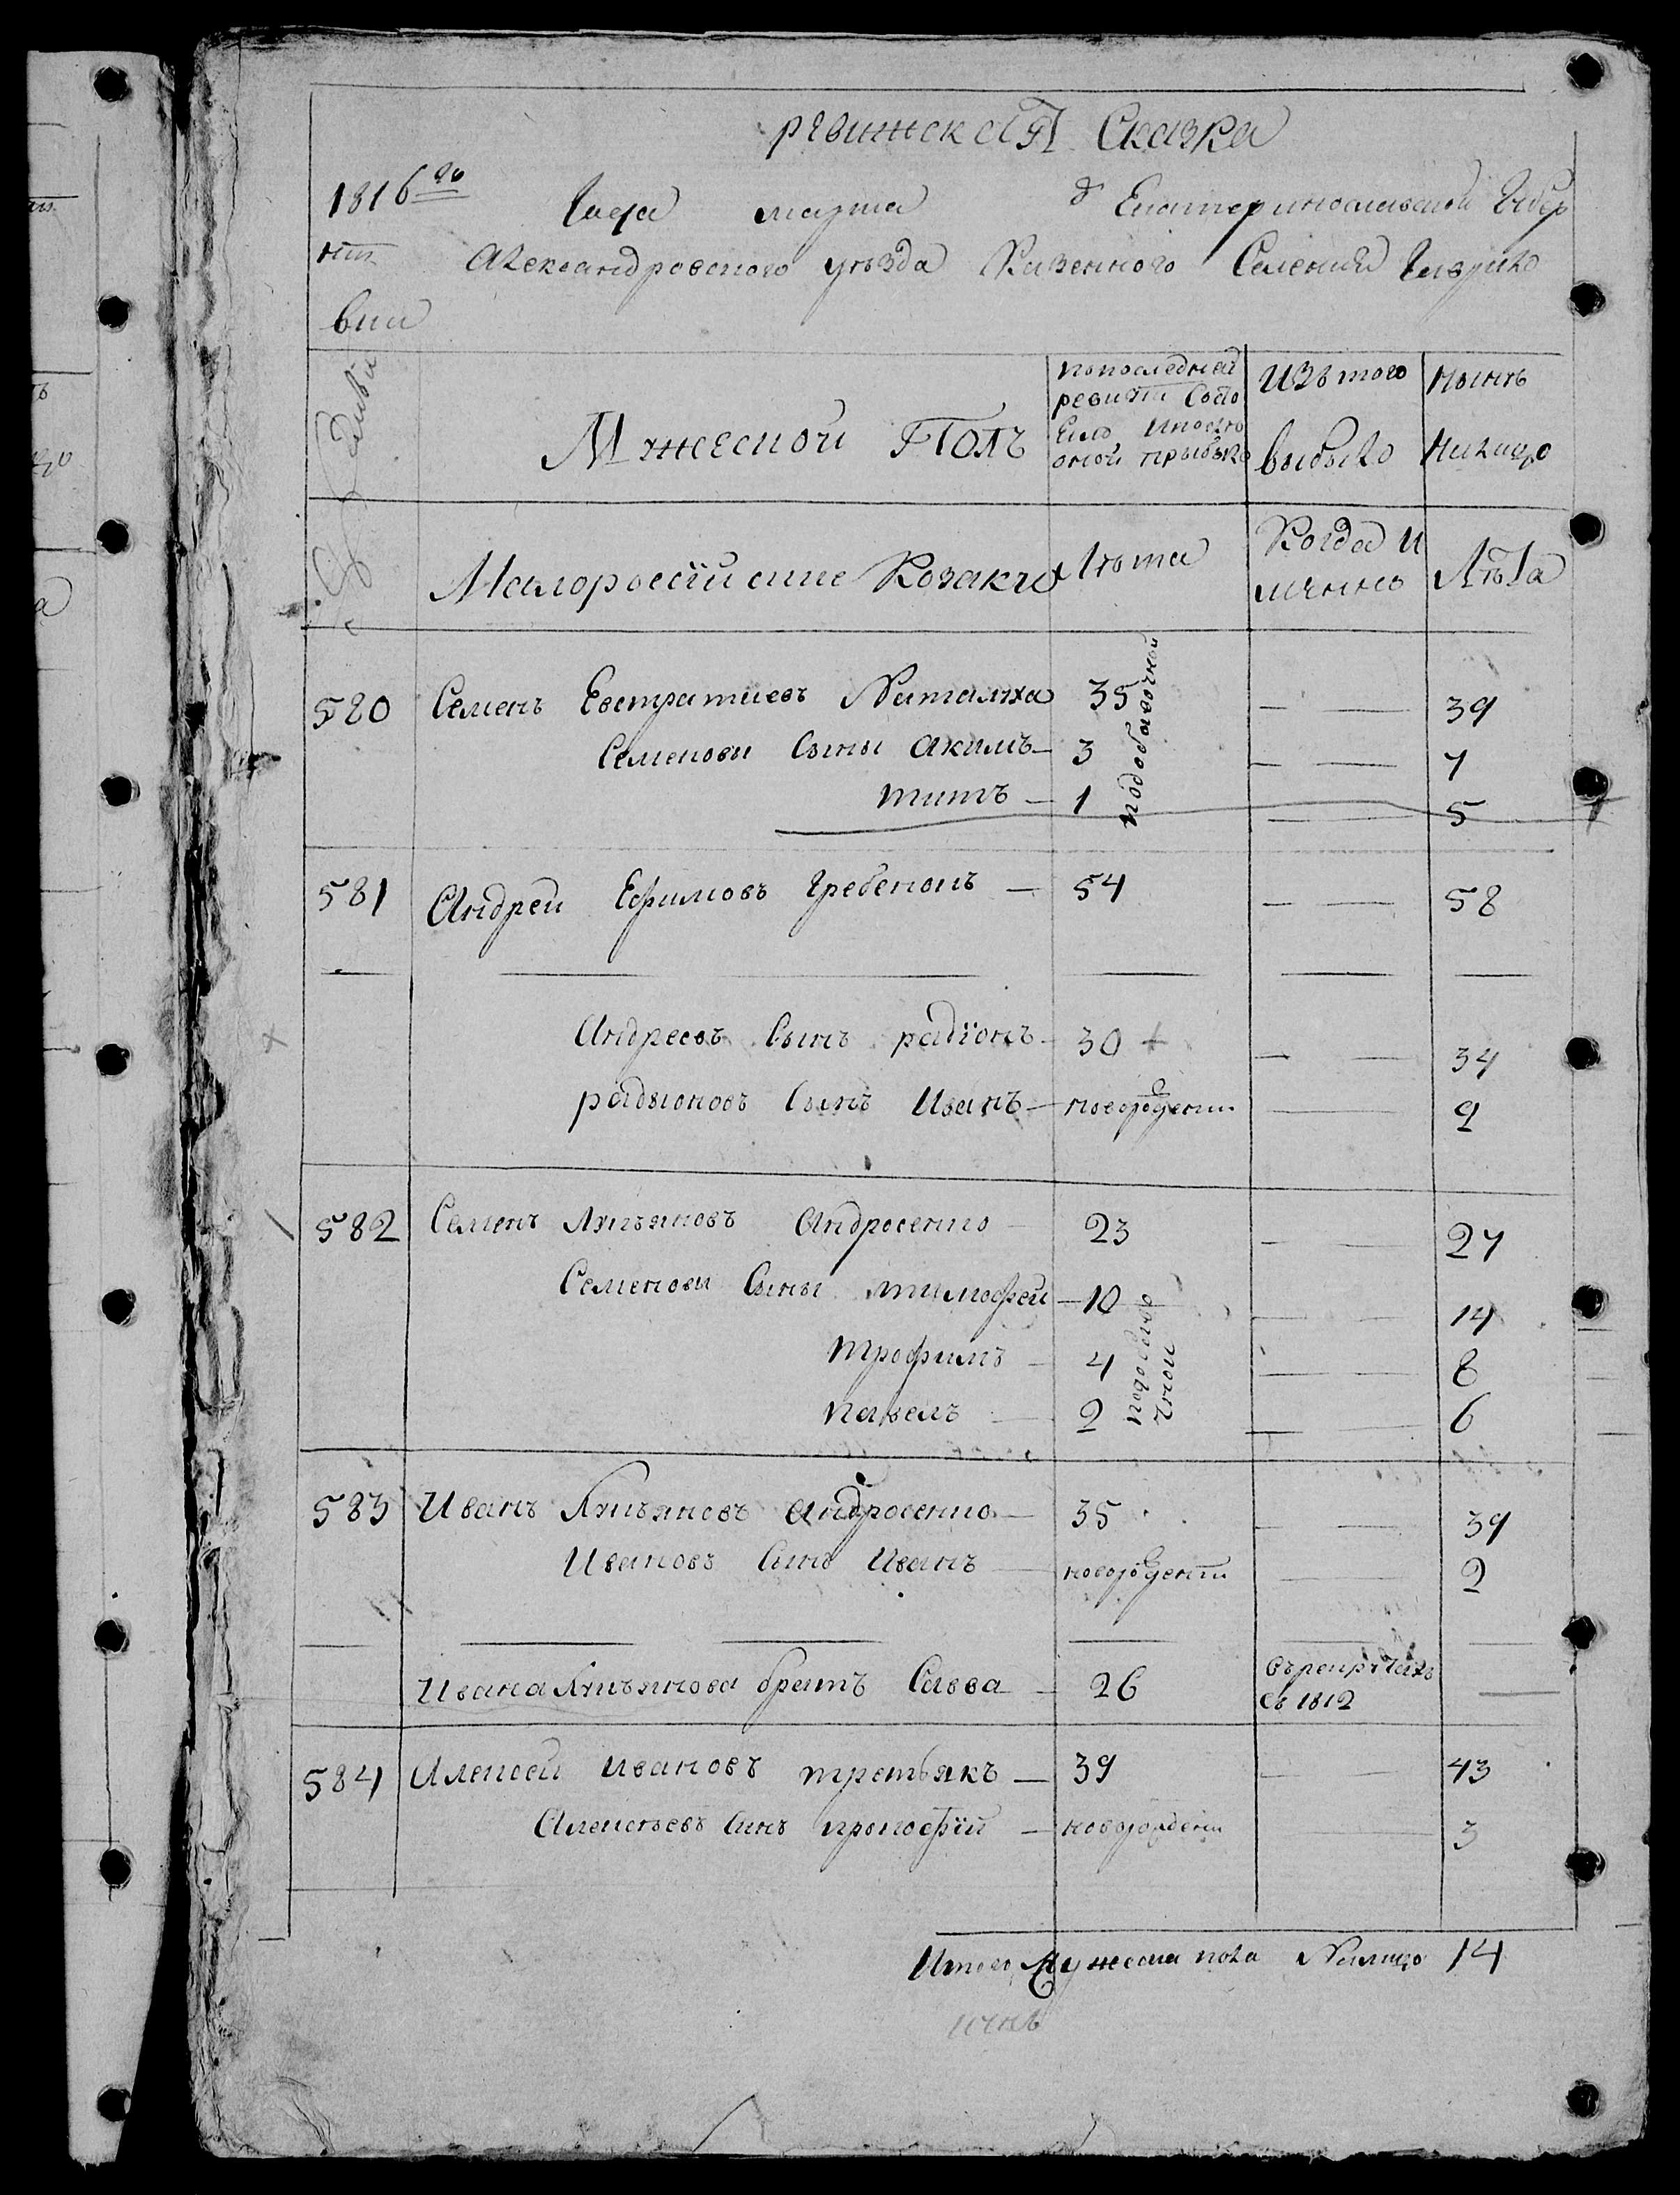 ревижскаЯ Сказка
1816го Года марта д Екатеринославской Губер
нїи Александровского уѣзда Казенного Селения Гаврило
вки
Семьи
Мужеской Полъ
попоследней ревизїи Состо
Изъ того
Нынѣ
выбыло
Налицо
Малоросїйские Козаки
Лѣта
Когда И
имянно
Лѣта
580 Семенъ Евстратиевъ 35 — — 39
Семенови Сыны Акимъ — 3 — — 7
титъ — 1 — — 5
подобавочной
581 Андрей Ефимовъ Гребенюкъ — 54 — — 58
Андреевъ Сынъ радїонъ — 30 — — 34
радионовъ Сынъ Иванъ — новорожденъ — 2
582 Семенъ Лукъяновъ Андросенко — 23 — — 27
Семенови Сыны тимофей — 10 — — 14
трофимъ — 4 — — 8
павелъ — 2 — — 6
подобавочной
583 Иванъ Лукъяновъ Андросенко — 35 — — 39
Ивановъ Синъ Иванъ — новорожденъ — 2
Ивана Лукъянова братъ Савва — 26 въ 1812 —
584 Алексей Ивановъ третьякъ — 39 — — 43
Алексеевъ Синъ прокофїй — новорожденъ — 3
Итого Мужеска пола Налицо 14